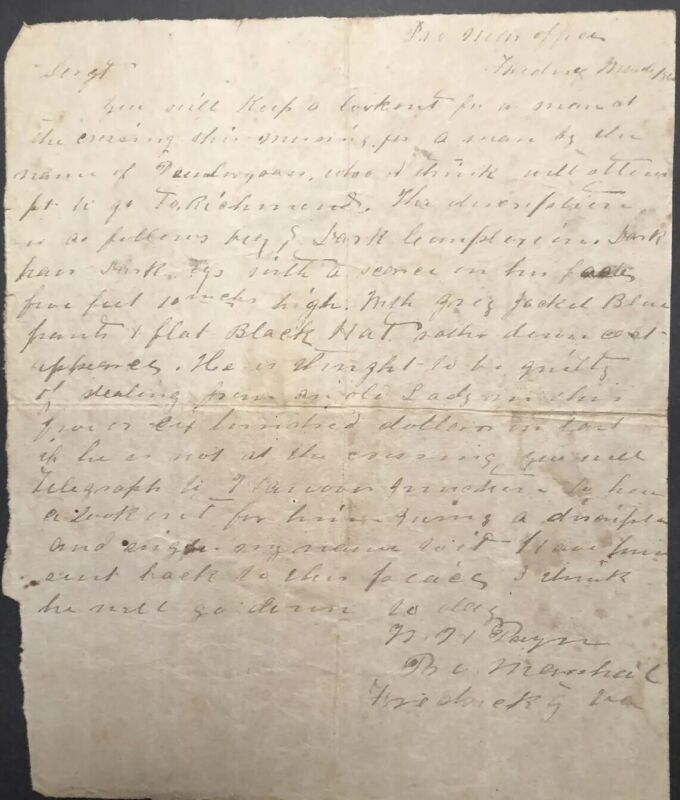 Pro Mar office
Sergt
You will Keep a lookout for a man at
the crossing this morning, for a man by the
name of who I think will attem
pt to go To Richmond. The discription
is as follows Dark Complexion Dark
hair Dark eys with a on his face
five feet 10 inches high. With grey Jacket Blue
pants & flat Black Hat rather down cast
appearnce. He is thought to be guilty
of stealing from an old Lady in this
five or six hundred dollars in
if he is not at the crossing you will
Telegraph to Hanover Junction to have
a Look out for him giving a discriptn
and sign my name to it Have him
sent back to this place I think
he will go down to day
Payn
Pro Marshall
Fredricksg Va